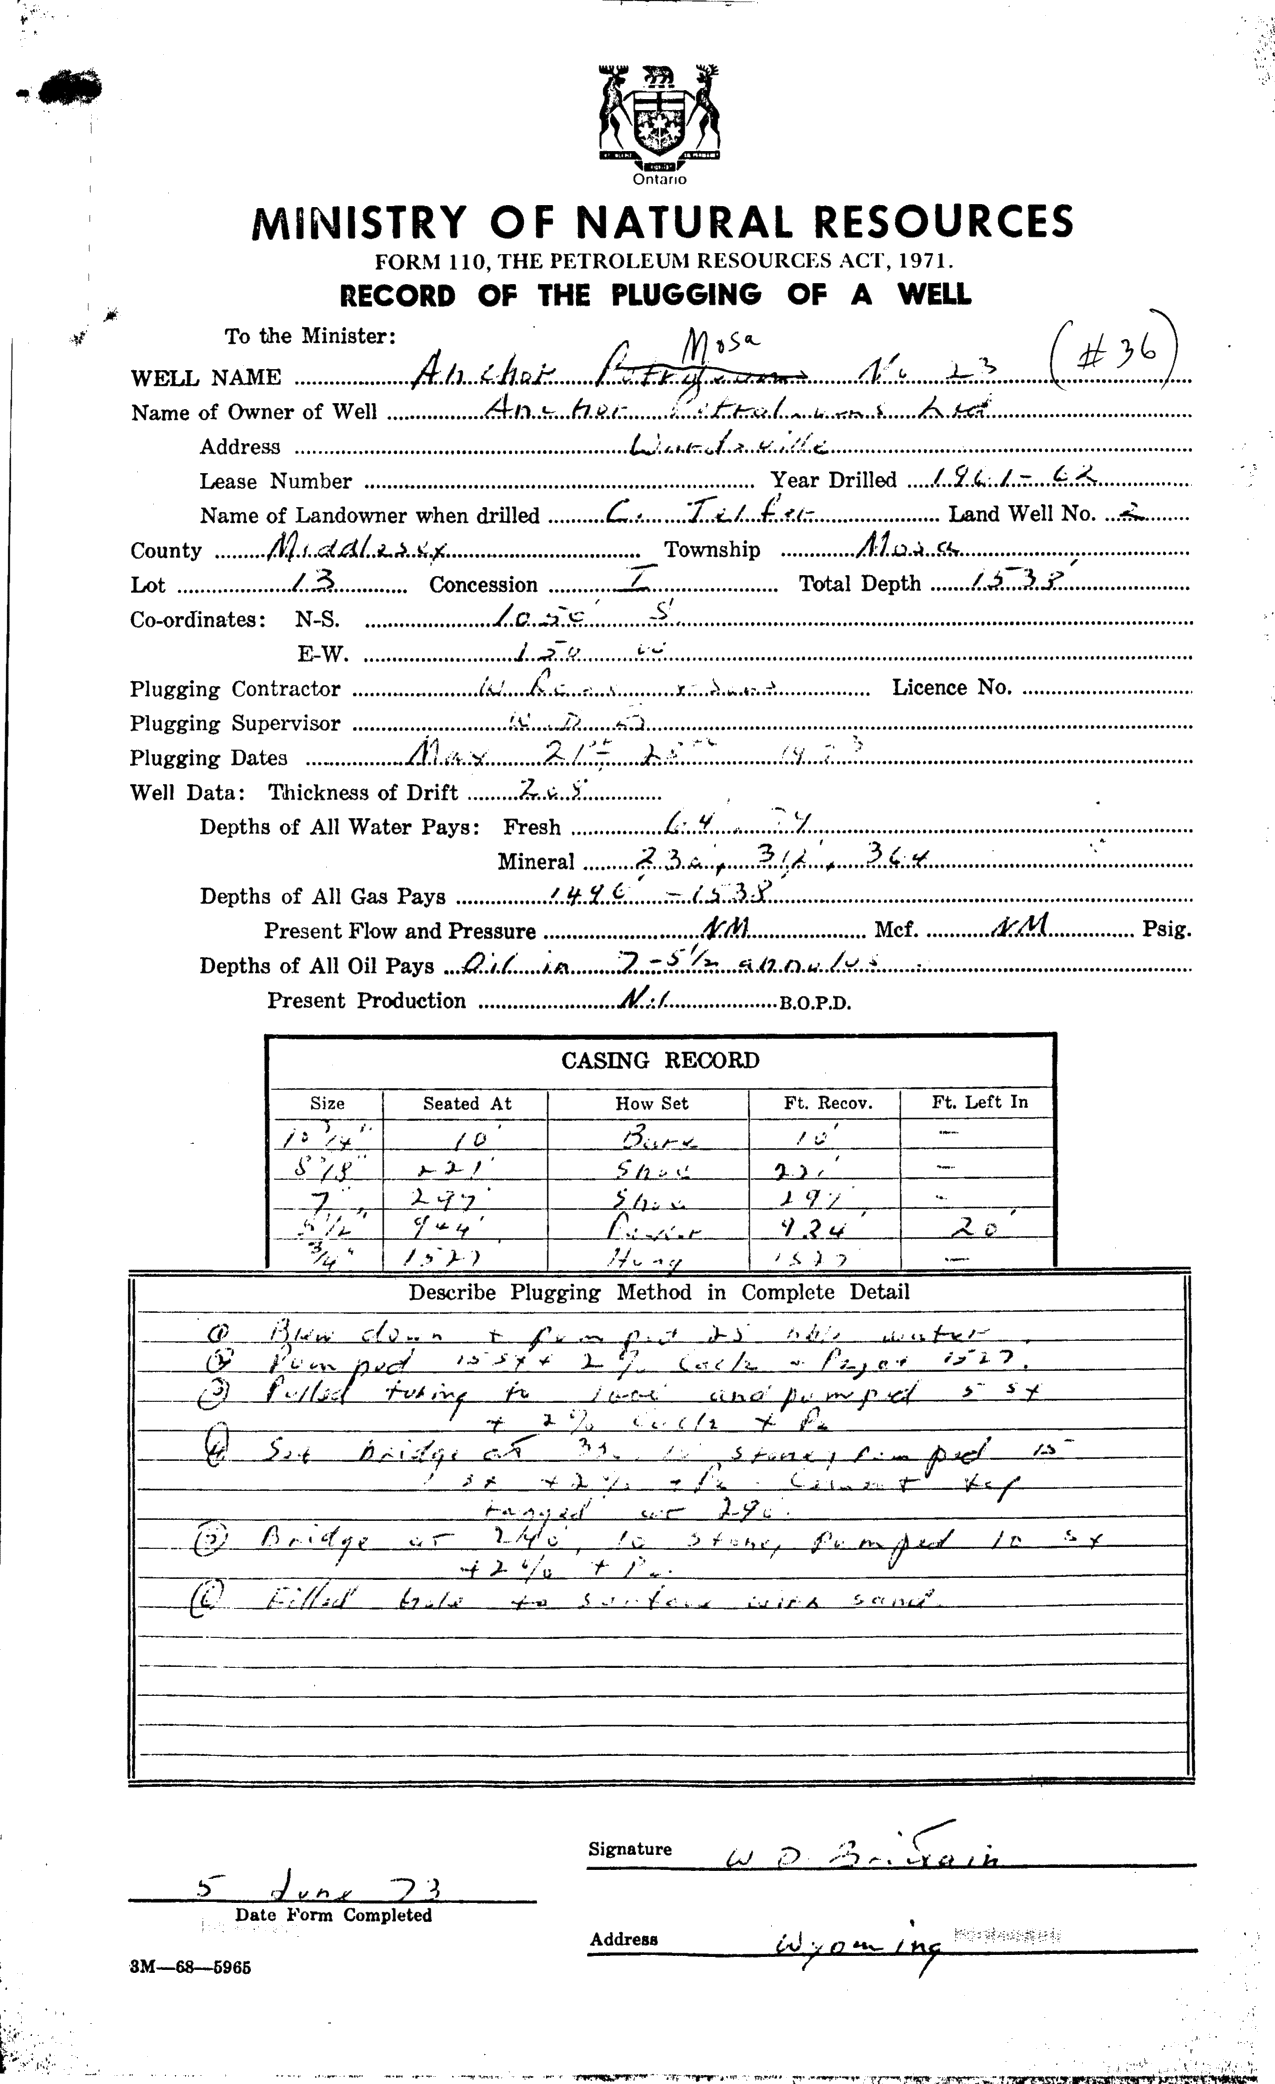 Ontario
MINISTRY OF NATURAL RESOURCES
FORM 110, THE PETROLEUM RESOURCES ACT, 1971.
RECORD OF THE PLUGGING OF A WELL
To the Minister:
Mosa
WELL NAME Anchor Petroleums No 23 (#36)
Name of Owner of Well Anchor Petroleums Ltd
Address Wardsville
Lease Number Year Drilled 1961-62
Name of Landowner when drilled C. Telfer Land Well No. 2
County Middlesex Township Mosa
Lot 13 Concession I Total Depth 1538'
Co-ordinates: N-S. 1050' S.
E-W. 150 W
Plugging Contractor W & Sons Licence No.
Plugging Supervisor W. D. B
Plugging Dates May 21st 25th 1973
Well Data: Thickness of Drift 208
Depths of All Water Pays: Fresh 64, 74
Mineral 230, 312, 364
Depths of All Gas Pays 1496' - 1538'
Present Flow and Pressure NM Mcf. NM Psig.
Depths of All Oil Pays Oil in 7 - 5 1/2 annulus
Present Production Nil B.O.P.D.
CASING RECORD
Size Seated At How Set Ft. Recov. Ft. Left In
10 3/4" 10' 10' —
8 5/8" 221' Shoe 221' —
7" 297' Shoe 297' -
5 1/2" 944' Packer 924' 20'
3/4" 1527 Hung 1527 —
Describe Plugging Method in Complete Detail
① Blew down + pumped 25 bbls water
② Pumped 15 sx + 2% CaCl2 1527.
③ Pulled tubing to and pumped 5 sx
+ 2% CaCl2 +
④ Set bridge at stone, pumped 15
sx + 2% + Cement top
tagged at 290.
⑤ Bridge at 240', 10 stone, pumped 10 sx
+ 2% +
⑥ Filled hole to surface with sand.
Signature W D Brittain
5 June 73
Date Form Completed
Address Wyoming
3M—68—5965